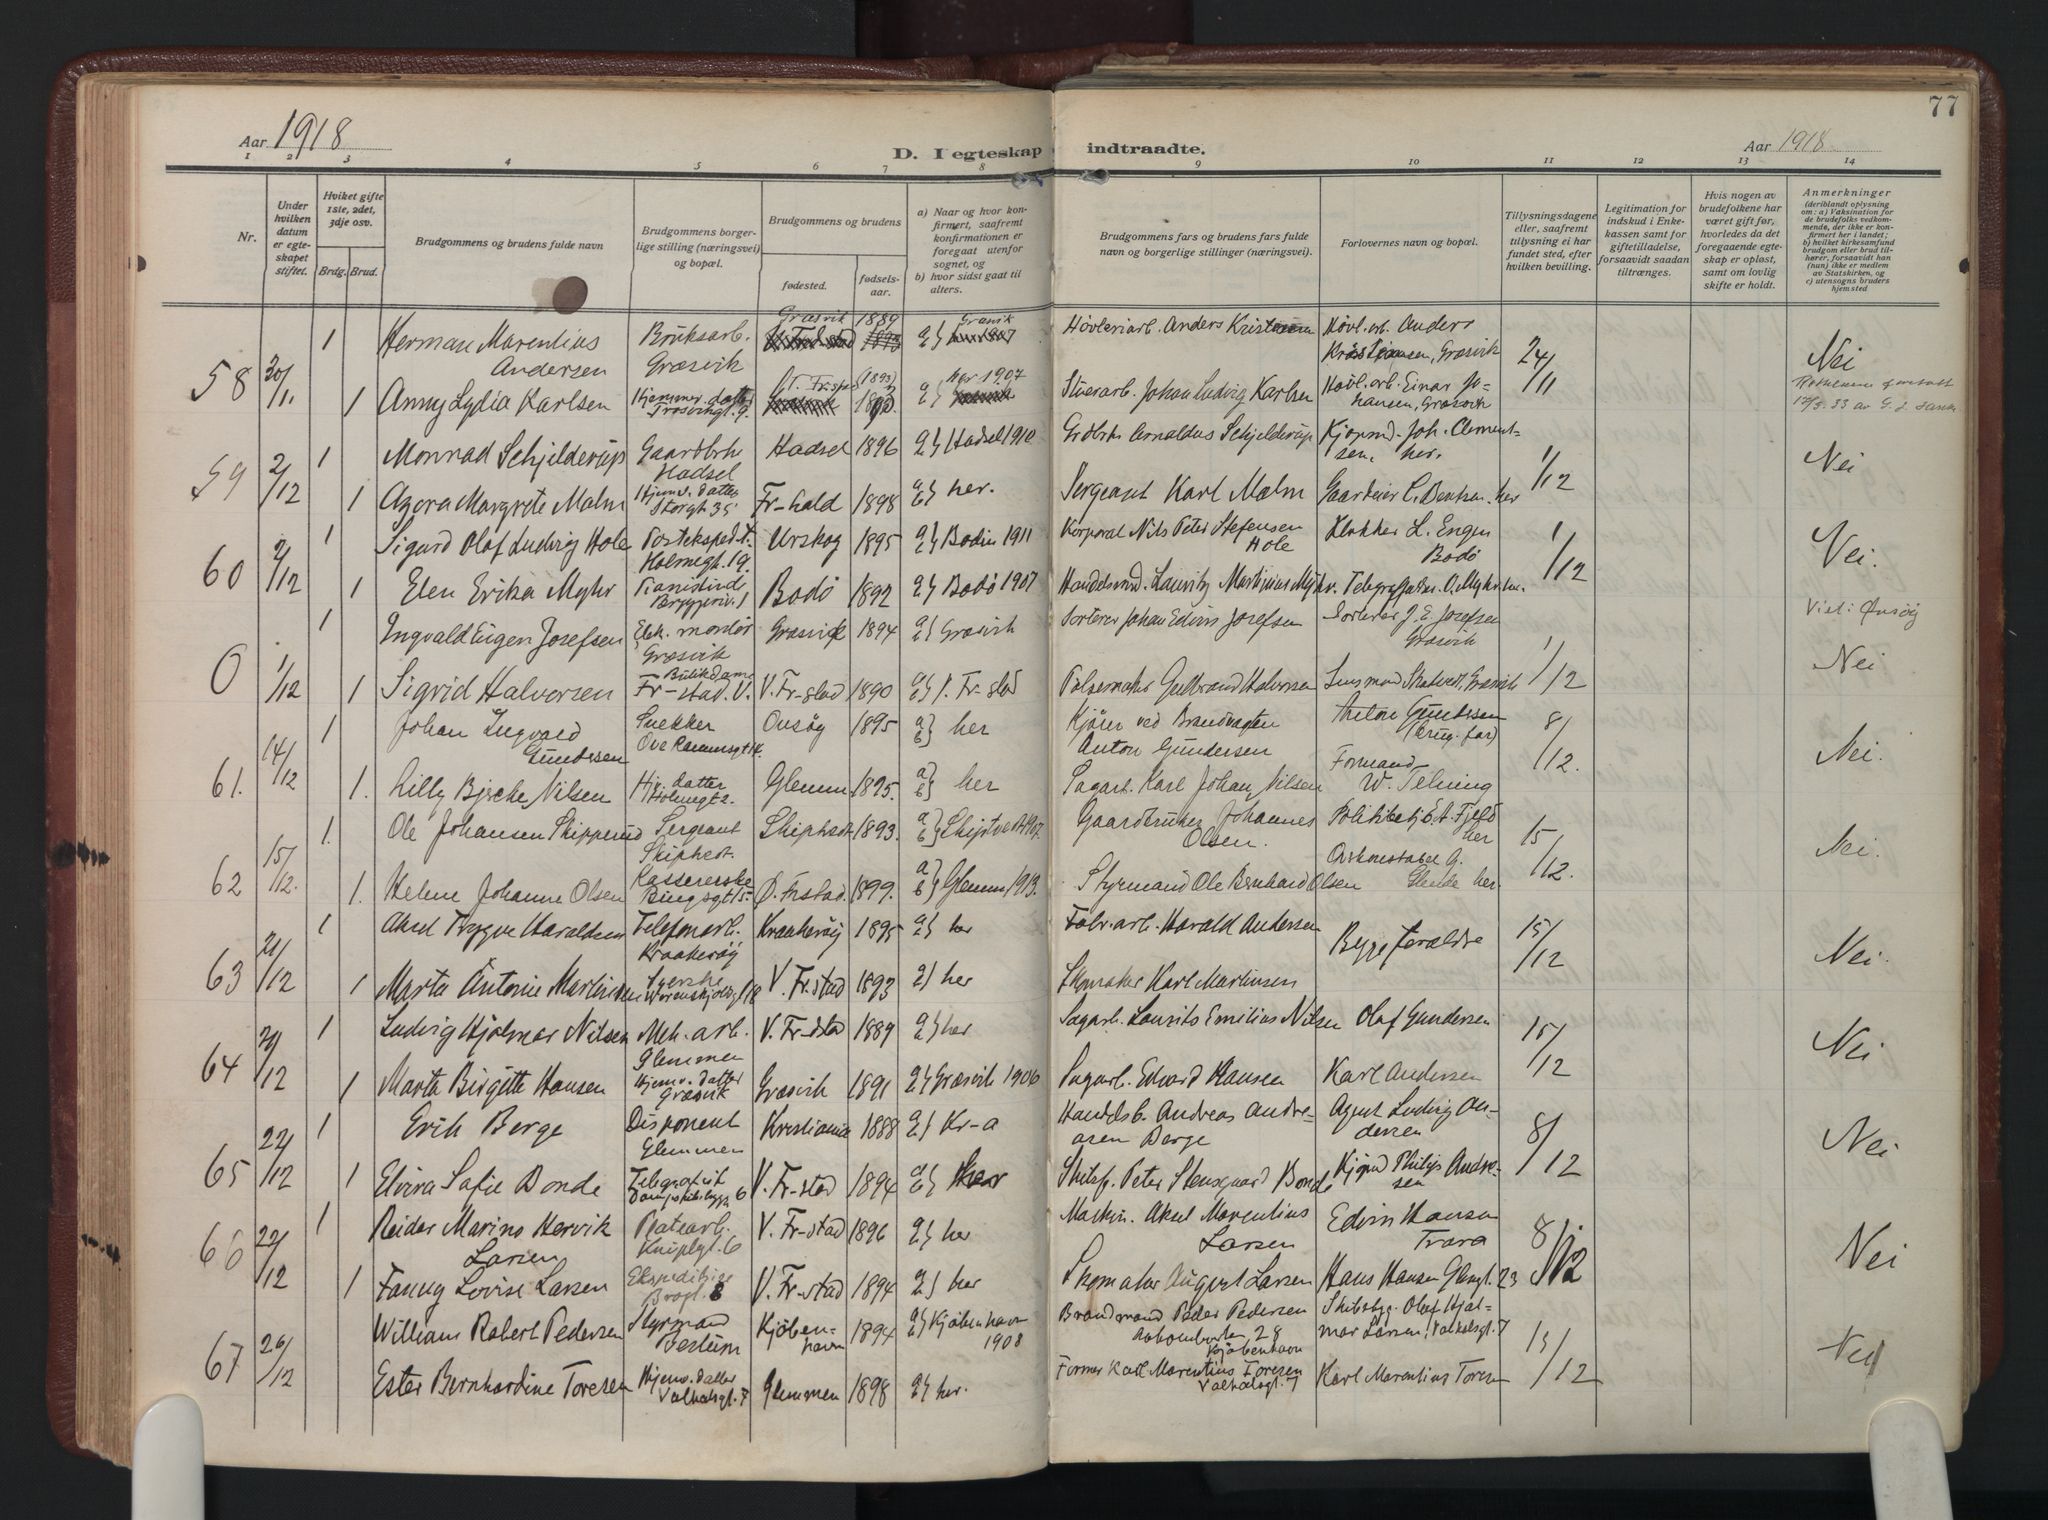 77
Aar 1918
D. I egteskap indtraadte.
Aar 1918
1 2 3 4 5 6 7 8 9 10 11 12 13 14
Nr.
Under hvilken datum er egteskapet stiftet.
Hviket gifte 1ste, 2det, 3dje osv.
Brdg. Brud.
Brudgommens og brudens fulde navn
Brudgommens borgerlige stilling (næringsvei) og bopæl.
Brudgommens og brudens
fødested.
fødselsaar.
a) Naar og hvor konfirmert, saafremt konfirmationen er foregaaet utenfor sognet, og
b) hvor sidst gaat til alters.
Brudgommens fars og brudens fars fulde navn og borgerlige stillinger (næringsvei).
Forlovernes navn og bopæl.
Tillysningsdagene eller, saafremt tillysning ei har fundet sted, efter hvilken bevilling.
Legitimation for indskud i Enkekassen samt for giftetilladelse, forsaavidt saadan tiltrænges.
Hvis nogen av brudefolkene har været gift før, hvorledes da det foregaaende egteskap er opløst, samt om lovlig skifte er holdt.
Anmerkninger (deriblandt oplysning om: a) Vaksination for de brudefolks vedkommende, der ikke er konfirmert her i landet; b) hvilket kirkesamfund brudgom eller brud tilhører, forsaavidt han (hun) ikke er medlem av Statskirken, og c) utensogns bruders hjemsted
58 30/11 1 Herman Marentius Andersen Bruksarb. Græsvik Græsvik 1889 a) Græsvik Høvleriarb. Anders Kristiansen Høvl. arb. Anders Kristiansen, Græsvik 24/11 Nei
1 Anny Lydia Karlsen Hjemmev. datter Trosvikgt. 9. (1893) a) her 1907 Stuerarb. Johan Ludvig Karlsen Høvl. arb. Einar Johansen, Græsvik
59 2/12 1 Monrad Schjelderup Gaardbrh Hadsel Hadsel 1896 a) Hadsel 1910 Grdbrh Arnoldus Schjelderup Kjøpmd. Joh. Clementsen, her. 1/12 Nei
1 Agora Margrete Malm Hjemv. datter Storgt 35 Fr-hald 1898 a) her. Sergeant Karl Malm Gaardeier C. Bentsen her
60 2/12 1 Sigurd Olaf Ludvig Hole Postekspedt. Holmegt. 19. Urskog 1895 a) Bodin 1911 Korporal Nils Peter Stefensen Hole Klokker L. Engen Bodø 1/12 Nei.
1 Elen Erika Myhr Pianistinde Bryggeriv. 1 Bodø 1892 a) Bodø 1907 Handelsmd. Lauritz Martinius Myhr. O. Myhr her.
0 1/12 1 Ingvald Eugen Josefsen Elek. montør Græsvik Græsvik 1894 a) Græsvik Sorterer Johan Edvin Josefsen Sorterer J. E. Josefsen Græsvik 1/12 Viet i Onsøy Nei
1 Sigrid Halvorsen Butikdame Fr-stad. V. V. Fr-stad 1890 a) V. Fr-stad Pølsemaker Gulbrand Halvorsen Græsvik
61. 14/12 1 Johan Ingvald Gundersen Snekker Onsøy 1895 a) b) her Kjører ved Brandvagten Anton Gundersen Anton Gundersen (brug. far) 8/12. Nei.
1. Lilly Bjerche Nilsen Hjv datter Holmegt 2. Glemm. 1895. a) b) her Sagarb. Karl Johan Nilsen Formand W. Telning
62 15/12. 1. Ole Johansen Skipperud Sergeant Skiphedt. 1893. a) b) Skiptvedt 1907. Gaardbruker Johannes Olsen. Fjeld her 15/12. Nei.
1. Helene Johanne Olsen Kassererske Bingsgt 15. Ø. Frstad. 1899. a) b) Glemm. 1913. Styrmand Ole Bernhard Olsen G. Glende her.
63 21/12 1 Aksel Trygve Haraldsen Telefonarb. Kraakerøy Kraakerøy 1895 a) her Fabr. arb. Harald Andersen Begge forældre 15/12 Nei.
1 Marta Antonie Martinsen Syerske V. Fr. stad 1893 a) her Skomaker Karl Martinsen
64 21/12 1 Ludvig Hjalmar Nilsen Mek. arb. Glemmen V. Fr-stad 1889 a) her Sagarb. Laurits Emilius Nilsen Olaf Gundersen 15/12 Nei
1 Marta Birgitte Hansen Hjemv. datter Græsvik Græsvik 1891 a) Græsvik 1906 Sagarb. Edvard Hansen Karl Andersen
65 22/12 1 Erik Berge Disponent Glemmen Kristiania 1888 a) Kr-a Handelsb. Andreas Andreasen Berge Agent Ludvig Andersen 8/12 Nei
1 Elvira Sofie Bonde Telegrafist Dampskibsbrygg. 6 V. Fr-stad 1894 a) her Skibsf. Peter Stensgaard Bonde Kjømd Philip Andresen
66 22/12 1 Reidar Marino Hervik Larsen Platearb. Kniplgt. 6 V. Fr-stad 1896 a) her Maskin. Aksel Marentius Larsen Edvin Hansen Trara 8/12 Nei
1 Fanny Lovise Larsen Ekspeditrice Brogt. 8 V. Fr-stad 1894 a) her Skomaker August Larsen Hans Hansen Glengt. 23
67 26/12 William Robert Pedersen Styrmand Vestum Kjøbenhavn 1894 a) Kjøbenhavn 1908 Brandmand Peder Pedersen 28 Kjøbenhavn Skibsbyg. Olaf Hjalmar Larsen, Valhalsgt. 7 15/12 Nei
Ester Bernhardine Toresen Hjemv. datter Valhalsgt. 7 Glemmen 1898 a) her. Former Karl Marentius Toresen Valhalsgt. 7 Karl Marentius Toresen